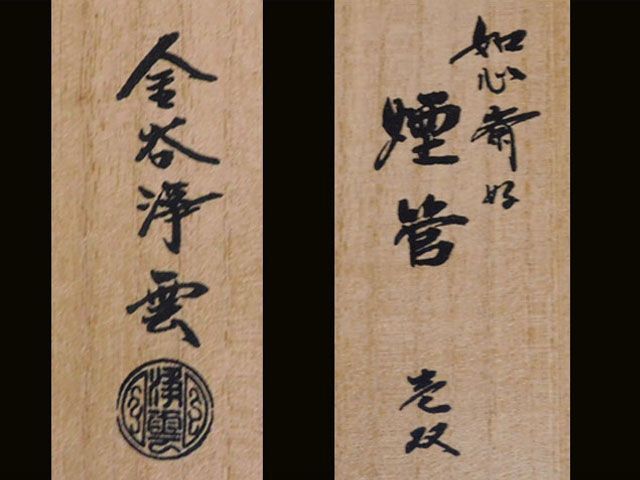 如心斎好
煙管
壱双
金谷浄雲
浄雲